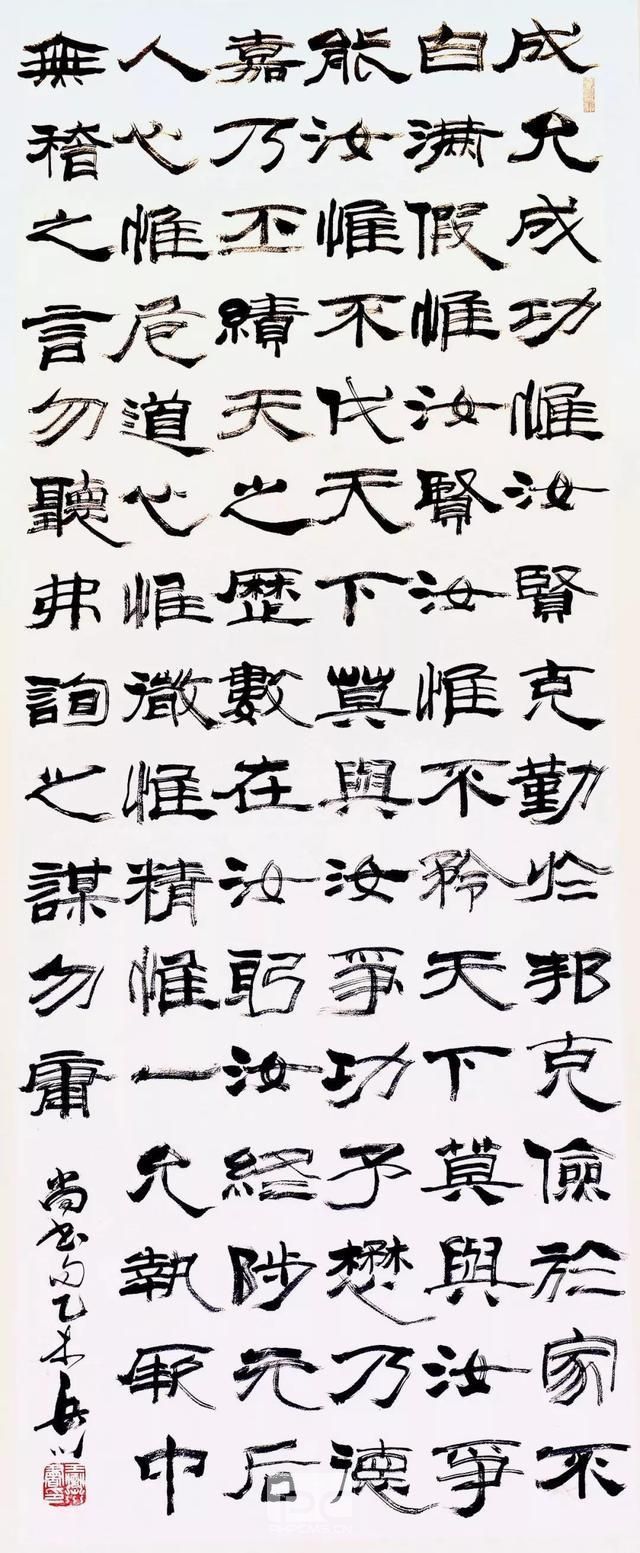 成允成功惟汝賢克勤於邦克儉於家不
自滿假惟汝賢汝惟不矜天下莫與汝爭
能汝惟不伐天下莫與汝爭功予懋乃德
嘉乃丕績天之歷數在汝躬汝終陟元后
人心惟危道心惟微惟精惟一允執厥中
無稽之言勿聽弗詢之謀勿庸
尚书句乙未岳川
PHPCMS.CN